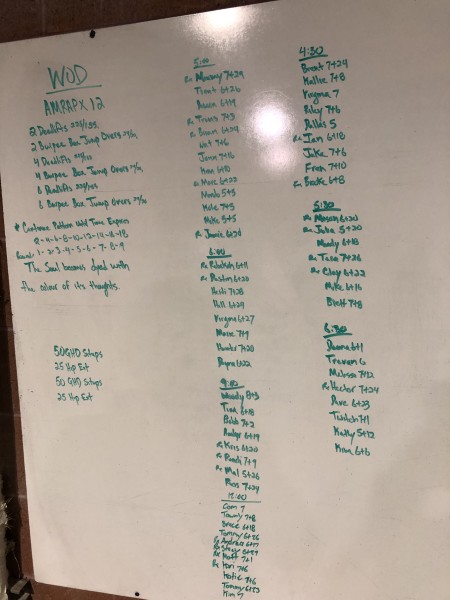 WOD
AMRAPX 12
2 Deadlifts 225/155
2 Burpee Box Jump Overs 24/20
4 Deadlifts
4 Burpee Box Jump Overs
6 Deadlifts 225/155
6 Burpee Box Jump Overs
* Continue Pattern Until Time Expires
2-4-6-8-10-12-14-16-18
Rounds 1-2-3-4-5-6-7-8-9
The Soul becomes dyed with
the colour of its thoughts.
50 GHD Situps
25 Hip Ext
50 GHD Situps
25 Hip Ext
5:00
7+29
Trent 6+26
6+19
Rx Travis 7+3
Rx 6+24
7+6
Jenn 7+16
6+10
Rx Marc 6+22
5+3
7+5
Mike 5+5
Rx Jamie 6+20
6:00
Rx 6+11
Rx Dustin 6+20
Heidi 7+28
Bill 6+29
Virginia 6+27
7+9
Hunter 7+20
6+22
9:00
Woody 8+3
Tina 6+18
Bobb 7+2
6+19
Rx Kris 6+20
Rx 7+9
Rx Mel 5+26
Russ 7+29
12:00
Cam 7
7+8
Bruce 6+18
Tommy 6+26
Rx
Rx
Rx Matt 7+1
Rx Tori 7+6
Katie 7+6
Tammy 6+23
Kim 7
4:30
Brent 7+24
Hallie 7+8
Virginia 7
Riley 7+6
Dallas 5
Rx Jan 6+18
Jake 7+6
Fran 7+10
Rx Brooke 6+8
5:30
Rx Mason 6+20
Rx Julie 5+20
Mandy 6+18
Rx Tara 7+26
Rx Clay 6+22
Mike 6+16
Brett 7+8
6:30
Deana 6+1
Treven 6
Melissa 7+12
Rx Hector 7+24
Ave 6+23
Twitch 7+1
Kathy 5+12
Kim 6+6